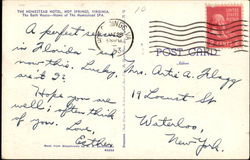 THE HOMESTEAD HOTEL, HOT SPRINGS, VIRGINIA
The Bath House—Home of The Homestead SPA
A perfect
in Florida
now this. Lucky,
Hope you are
well & often think
of you. Love,
Esther
POST CARD
Mrs. Artie A. Flagg
19 Locust St
Waterloo,
New York.